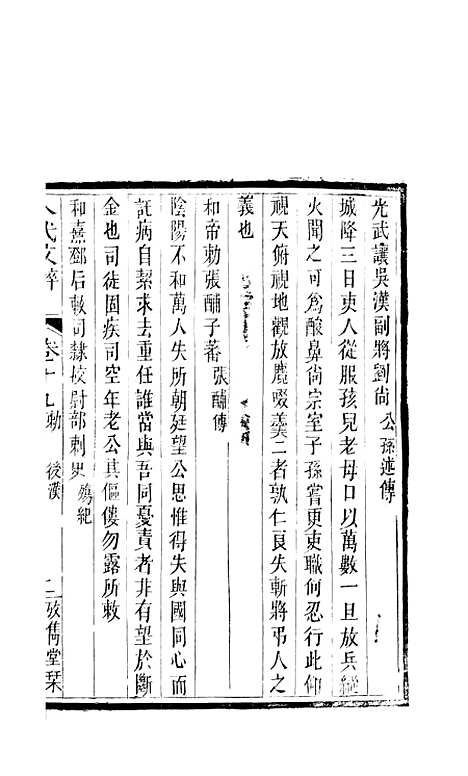 光武讓吳漢副將劉尚 公孫述傳
城降三日吏人從服孩兒老母口以萬數一旦放兵縱
火聞之可爲酸鼻尚宗室子孫嘗更吏職何忍行此仰
視天俯視地觀放麑啜羹二者孰仁良失斬將弔人之
義也
和帝勅張酺子蕃 張酺傳
陰陽不和萬人失所朝廷望公思惟得失與國同心而
託病自絜求去重任誰當與吾同憂責者非有望於斷
金也司徒固疾司空年老公其傴僂勿露所敕
和熹鄧后敕司隸校尉部刺史 殤紀
八代文粹 卷十九勅 後漢 二 攷雋堂栞